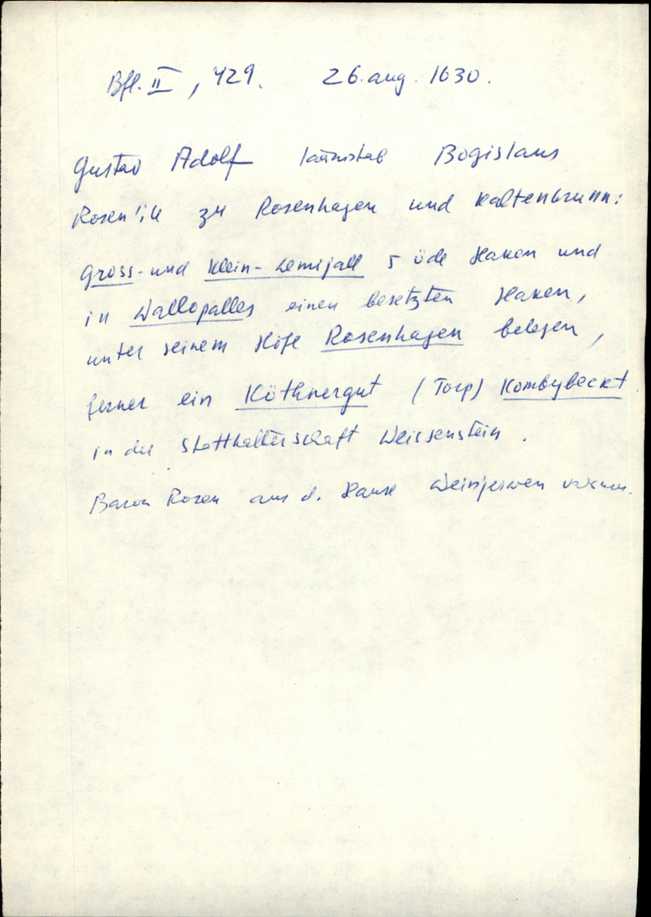 Bfl. II, 429. 26. aug. 1630.
Gustav Adolf läänistab Bogislaus
Rosen'ile zu Rosenhagen und Kaltenbrunn:
Gross- und Klein-Lemijall 5 öde Haken und
in Wallopalles einen besetzten Haken,
unter seinem Hofe Rosenhagen belegen,
ferner ein Köthnergut (Torp) Kombybeckt
in der Statthalterschaft Weissenstein.
Baron Rosen aus d. Hause Weinjerwen